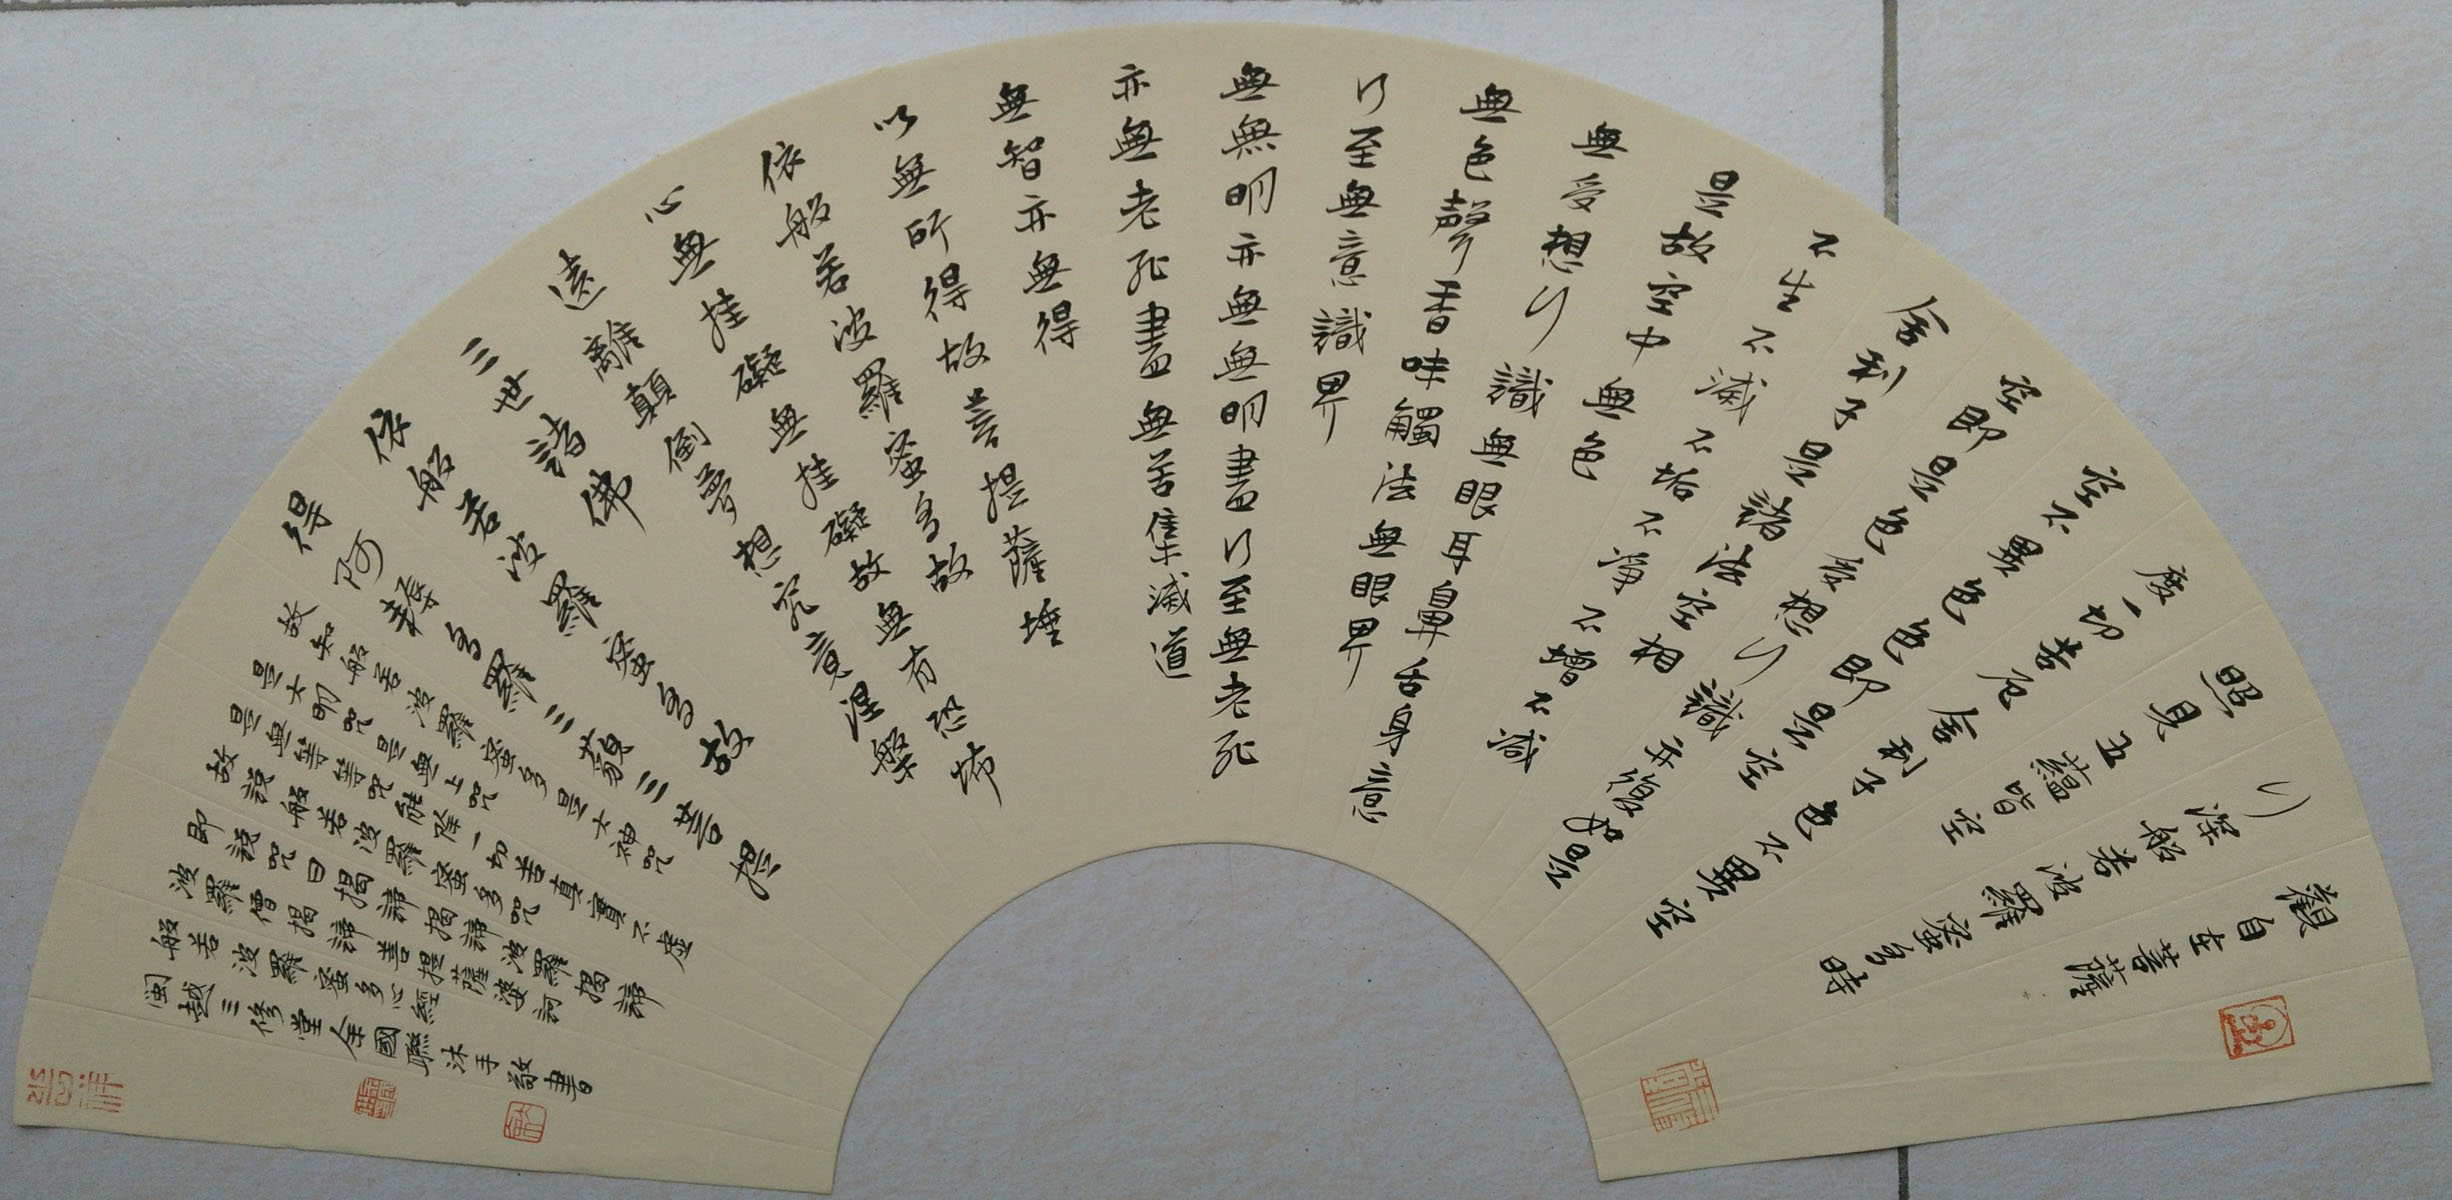 觀自在菩薩
行深般若波羅蜜多時
照見五蘊皆空
度一切苦厄舍利子色不異空
空不異色色即是空
空即是色受想行識亦復如是
舍利子是諸法空相
不生不滅不垢不淨不增不減
是故空中無色
無受想行識無眼耳鼻舌身意
無色聲香味觸法無眼界
乃至無意識界
無無明亦無無明盡乃至無老死
亦無老死盡無苦集滅道
無智亦無得
以無所得故菩提薩埵
依般若波羅蜜多故
心無挂礙無挂礙故無有恐怖
遠離顛倒夢想究竟涅槃
三世諸佛
依般若波羅蜜多故
得阿耨多羅三藐三菩提
故知般若波羅蜜多是大神咒
是大明咒是無上咒
是無等等咒能除一切苦真實不虛
故說般若波羅蜜多咒
即說咒曰揭諦揭諦波羅揭諦
波羅僧揭諦菩提薩婆訶
般若波羅蜜多心經
閩越三修堂余國聯沐手敬書